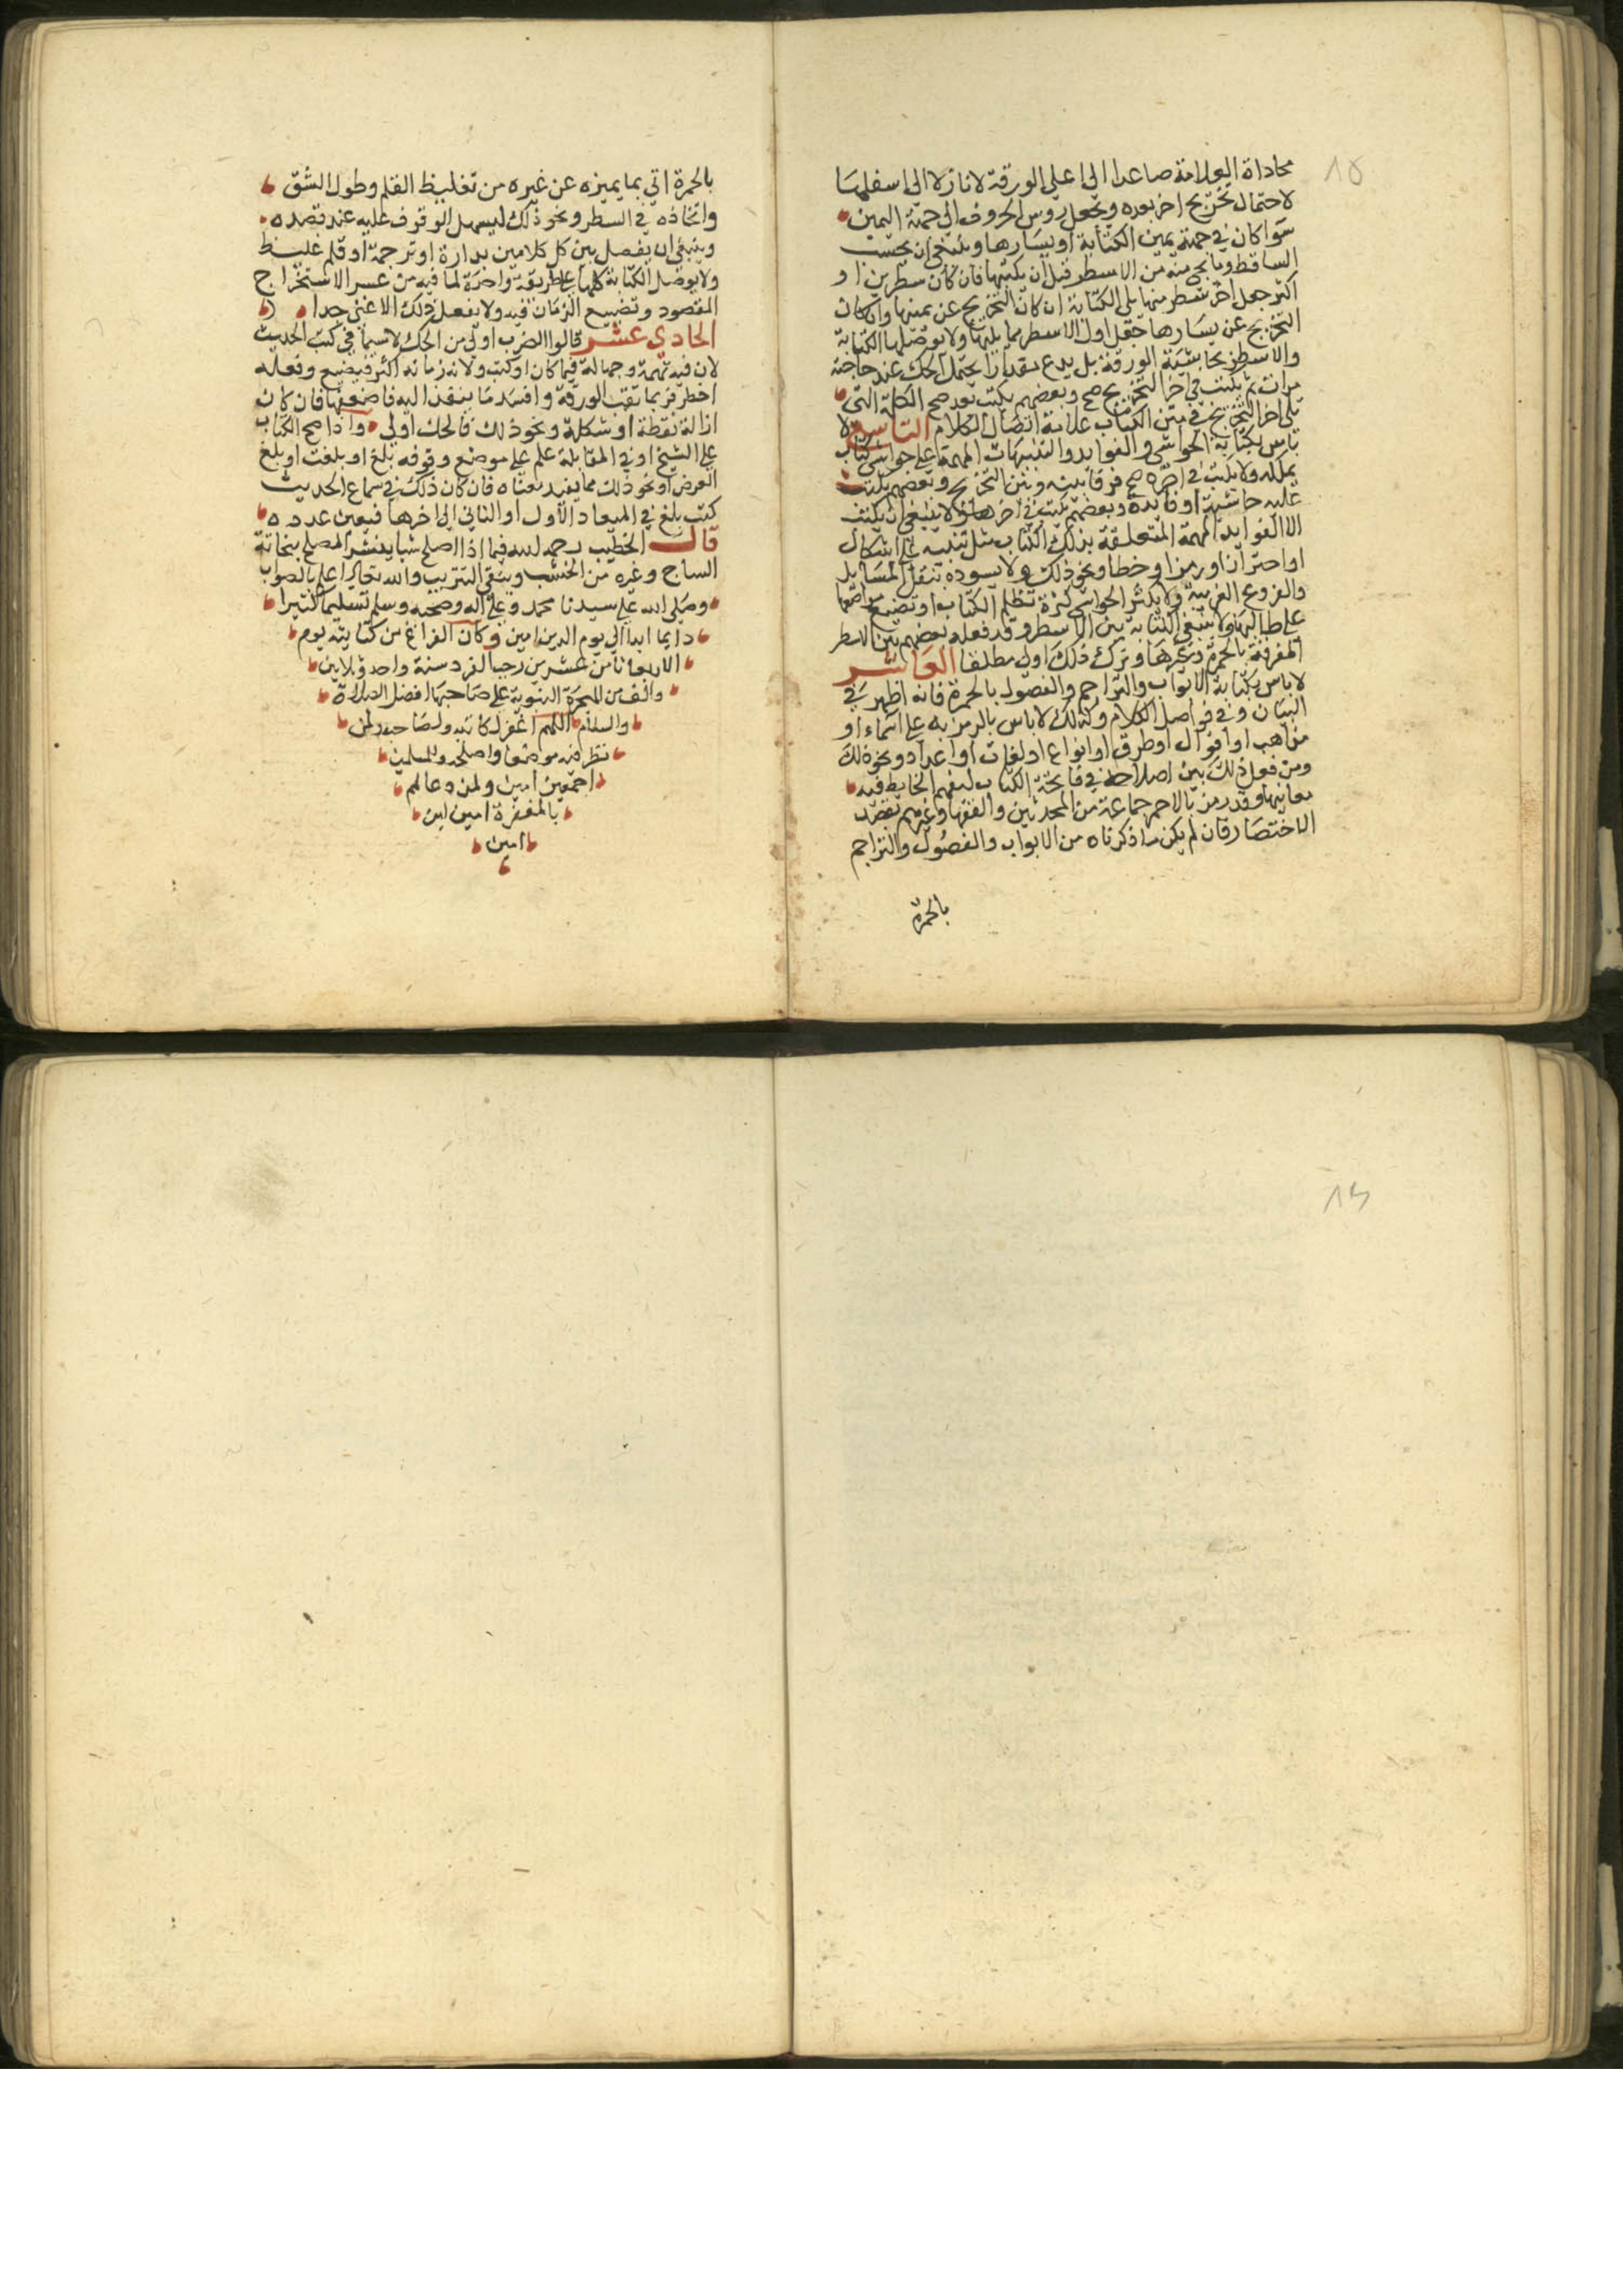 محاذاة العلامة صاعدا الى اعلى الورقة لا نازلا الى اسفلها
لاحتمال تخريج اخر بعده ويجعل روس الحروف الى جهة اليمين
سوا كان في جهة يمين الكتابة او يسارها وينبغي ان يحسب
الساقط وما يجي منه من الاسطر قبل ان يكتبها فان كان سطرين او
اكثر جعل اخر سطر منها يلي الكتابة ان كان التخريج عن يمينها وان كان
التخريج عن يسارها جعل اول الاسطر مما يليها ولا يوصل الكتابة
والاسطر بحاشية الورقة بل يدع مقدارا يحتمل الحك عند حاجته
مرات ثم يكتب في اخر التخريج صح وبعضهم يكتب بعد صح الكلمة التي
تلى اخر التخريج في متن الكتاب علامة اتصال الكلام التاسع لا
باس بكتابة الحواشي والفوايد والتنبيهات المهمة على حواشي كتاب
يملكه ولا يكتب في اخره صح فرقا بينه وبين التخريج وبعضهم يكتب
عليه حاشية او فايدة وبعضهم يكتب في اخرها ولا ينبغي ان يكتب
الا الفوايد المهمة المتعلقة بذلك الكتاب مثل تنبيه على اشكال
او احتراز او رمز او خطا ونحو ذلك ولا يسوده بنقل المسايل
والفروع الغريبة ولا يكثر الحواشي كثرة تظلم الكتاب او تضيع مواضعها
على طالبها ولا ينبغي الكتابة بين الاسطر وقد فعله بعضهم بين الاسطر
المفرقة بالحمرة وغيرها وترك ذلك اولى مطلقا العاشر
لا باس بكتابة الابواب والتراجم والفصول بالحمرة فانه اظهر في
البيان وفي فواصل الكلام وكذلك لا باس بالرمز به على اسماء او
مذاهب او اقوال او طرق او انواع او لغات او اعداد ونحو ذلك
ومن فعل ذلك بين اصلاحه في فاتحة الكتاب ليفهم الخايض فيه
معانيها وقد رمز بالاحمر جماعة من المحدثين والفقها وغيرهم بقصد
الاختصار فان لم يكن ما ذكرناه من الابواب والفصول والتراجم
بالحمرة
١٥
بالحمرة اتي بما يميزه عن غيره من تغليظ القلم وطول الشق
واتخاذه في السطر ونحو ذلك ليسهل الوقوف عليه عند قصده
وينبغي ان يفصل بين كل كلامين بدارة او ترجمة او قلم غليظ
ولا يوصل الكتابة كلها على طريقة واحدة لما فيه من عسر الاستخراج
المقصود وتضييع الزمان فيه ولا يفعل ذلك الا غبي جدا
الحادي عشر قالوا الضرب اولى من الحك لاسيما في كتب الحديث
لان فيه تهمة وجهالة فيما كان او كتب ولان زمانه اكثر فيضيع وفعله
اخطر فربما ثقب الورقة وافسد ما ينفذ اليه فاضعفها فان كان
ازالة نقطة او شكلة ونحو ذلك فالحك اولى واذا صح الكتاب
على الشيخ او في المقابلة علم على موضع وقوفه بلغ او بلغت او بلغ
العرض او نحو ذلك مما يفيد معناه فان كان ذلك في سماع الحديث
كتب بلغ في الميعاد الاول او الثاني الى اخرها فيعين عدده
قال الخطيب رحمه الله فيما اذا اصلح شيا ينشر المصلح بنحاتة
الساج وغيره من الخشب ويتقي التتريب والله تعالى اعلم بالصواب
وصلى الله على سيدنا محمد وعلى اله وصحبه وسلم تسليما كثيرا
دايما ابدا الى يوم الدين امين وكان الفراغ من كتابته يوم
الاربعا ثامن عشرين رجب الفرد سنة واحد وثلاثين
والف من الهجرة النبوية على صاحبها افضل الصلاة
والسلام اللهم اغفر لكاتبه ولصاحبه ولمن
نظر فيه موضعا واصلحه وللمسلمين
اجمعين امين ولمن دعا لهم
بالمغفرة امين امين
امين